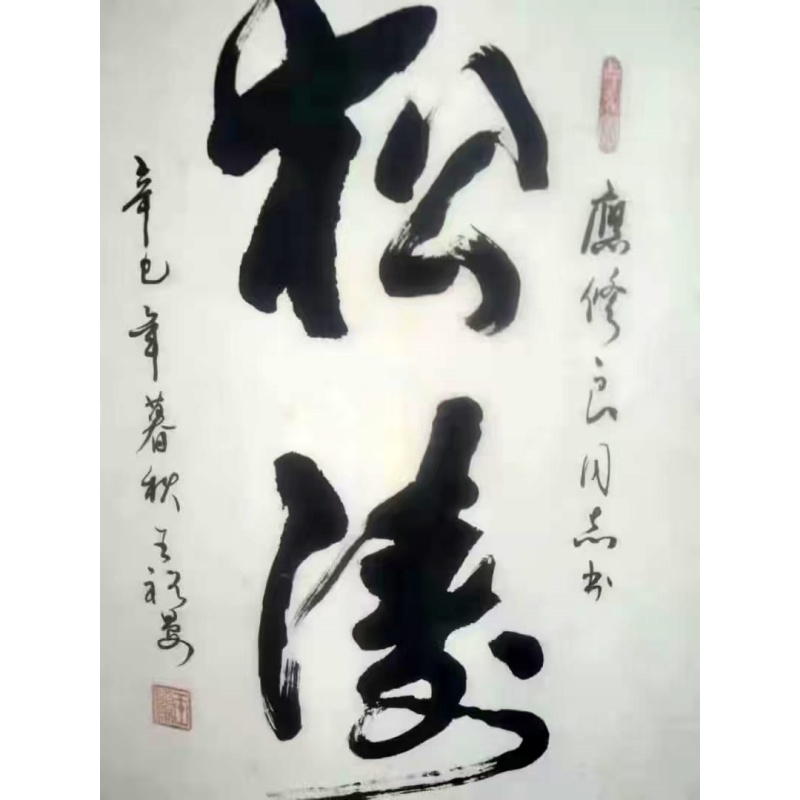 松涛
應修良同志书
辛巳年暮秋王裕晏